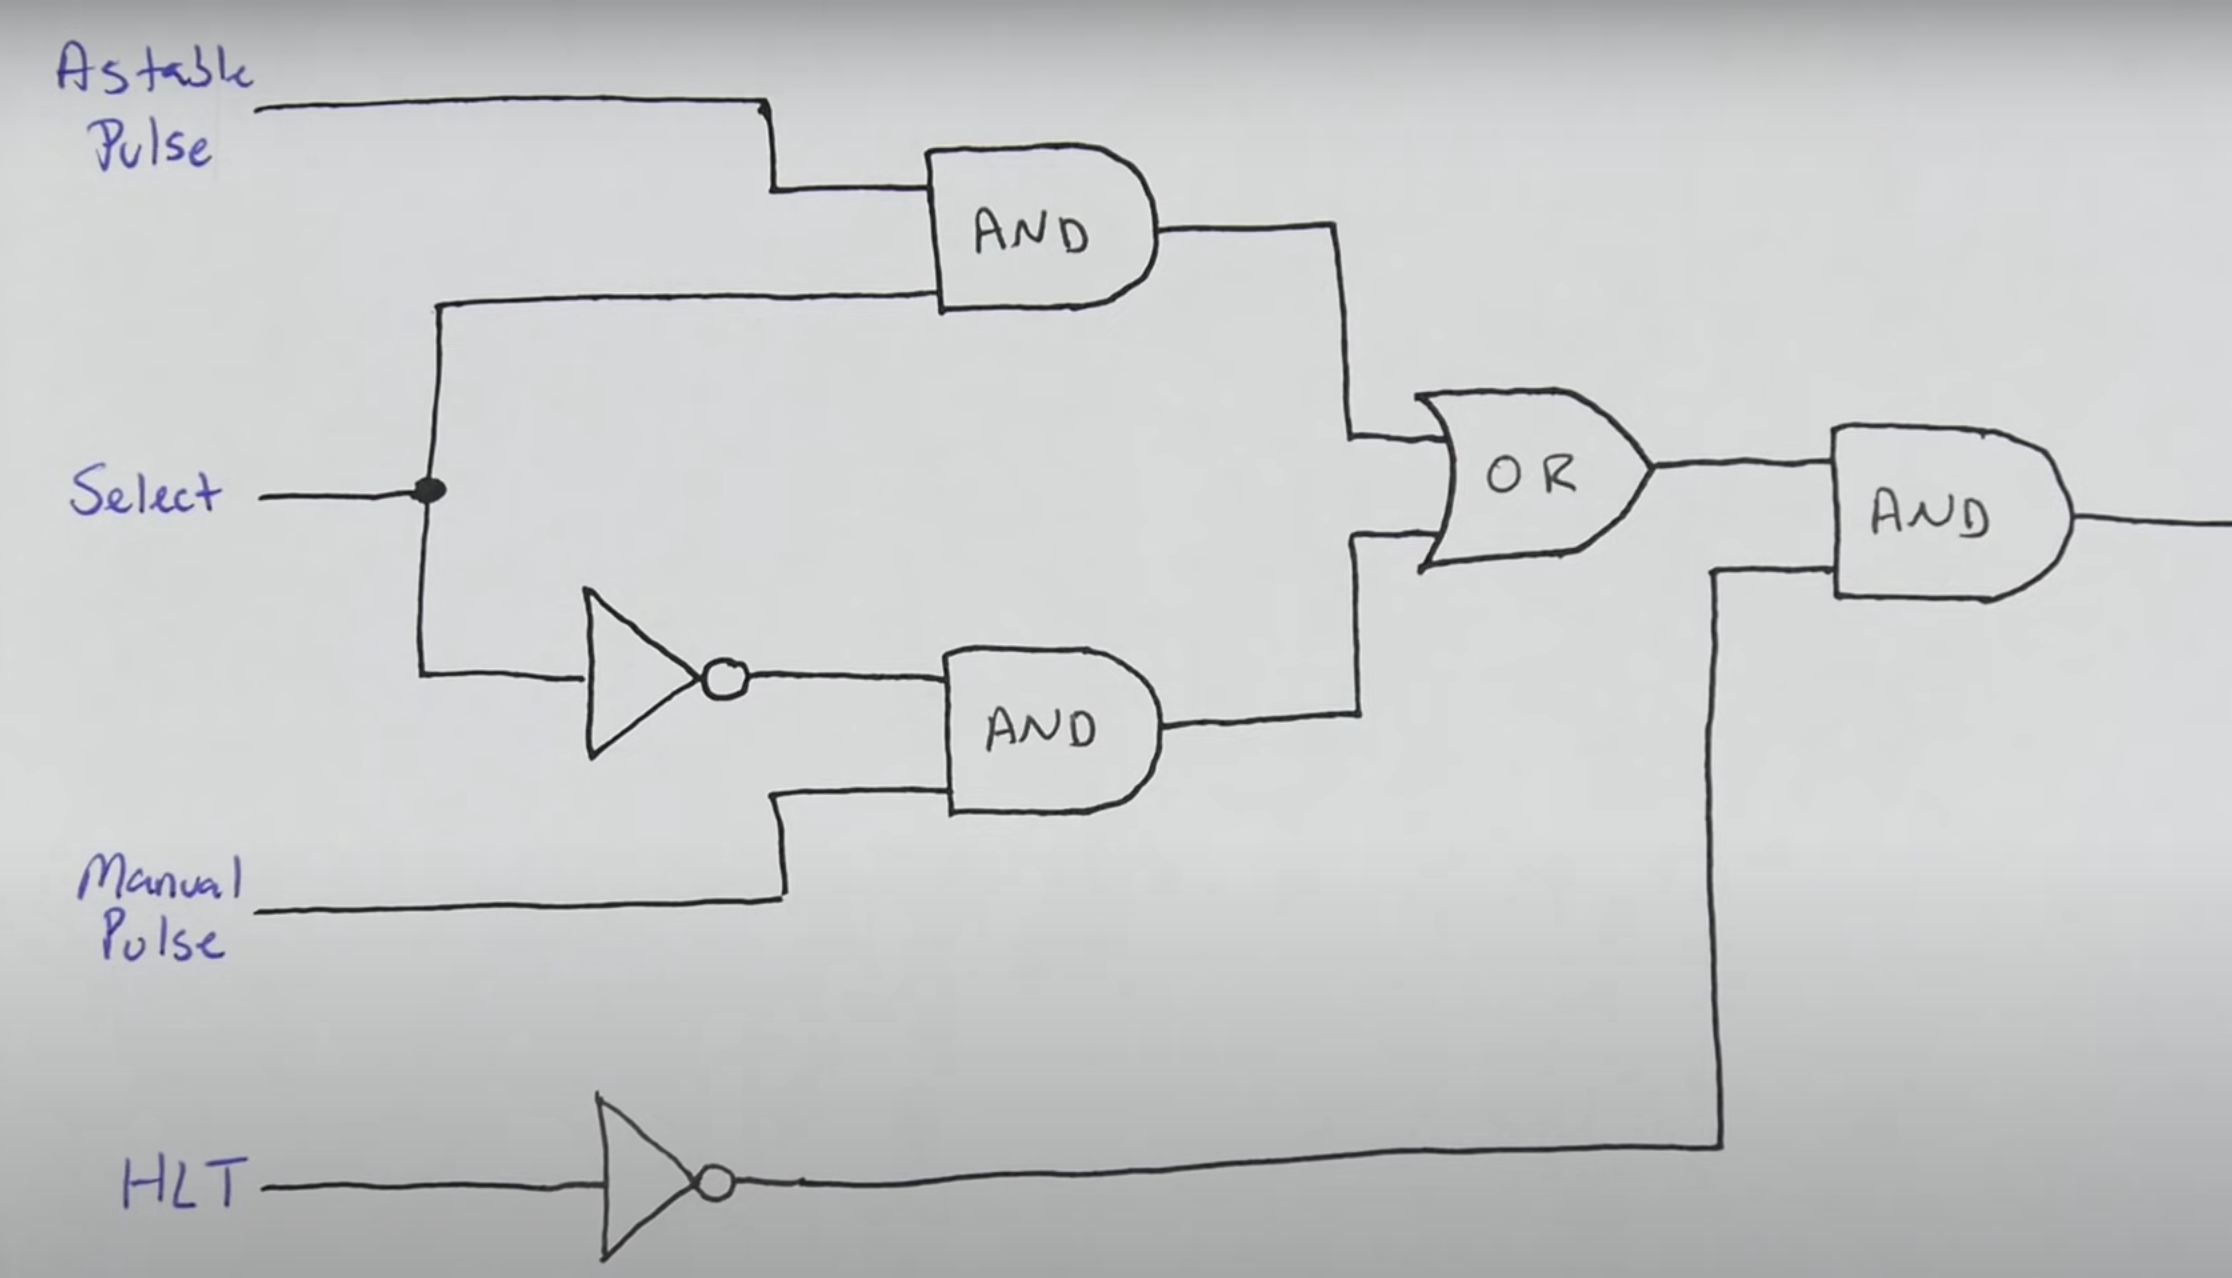 Astable
Pulse
AND
Select
OR
AND
AND
Manual
Pulse
HLT